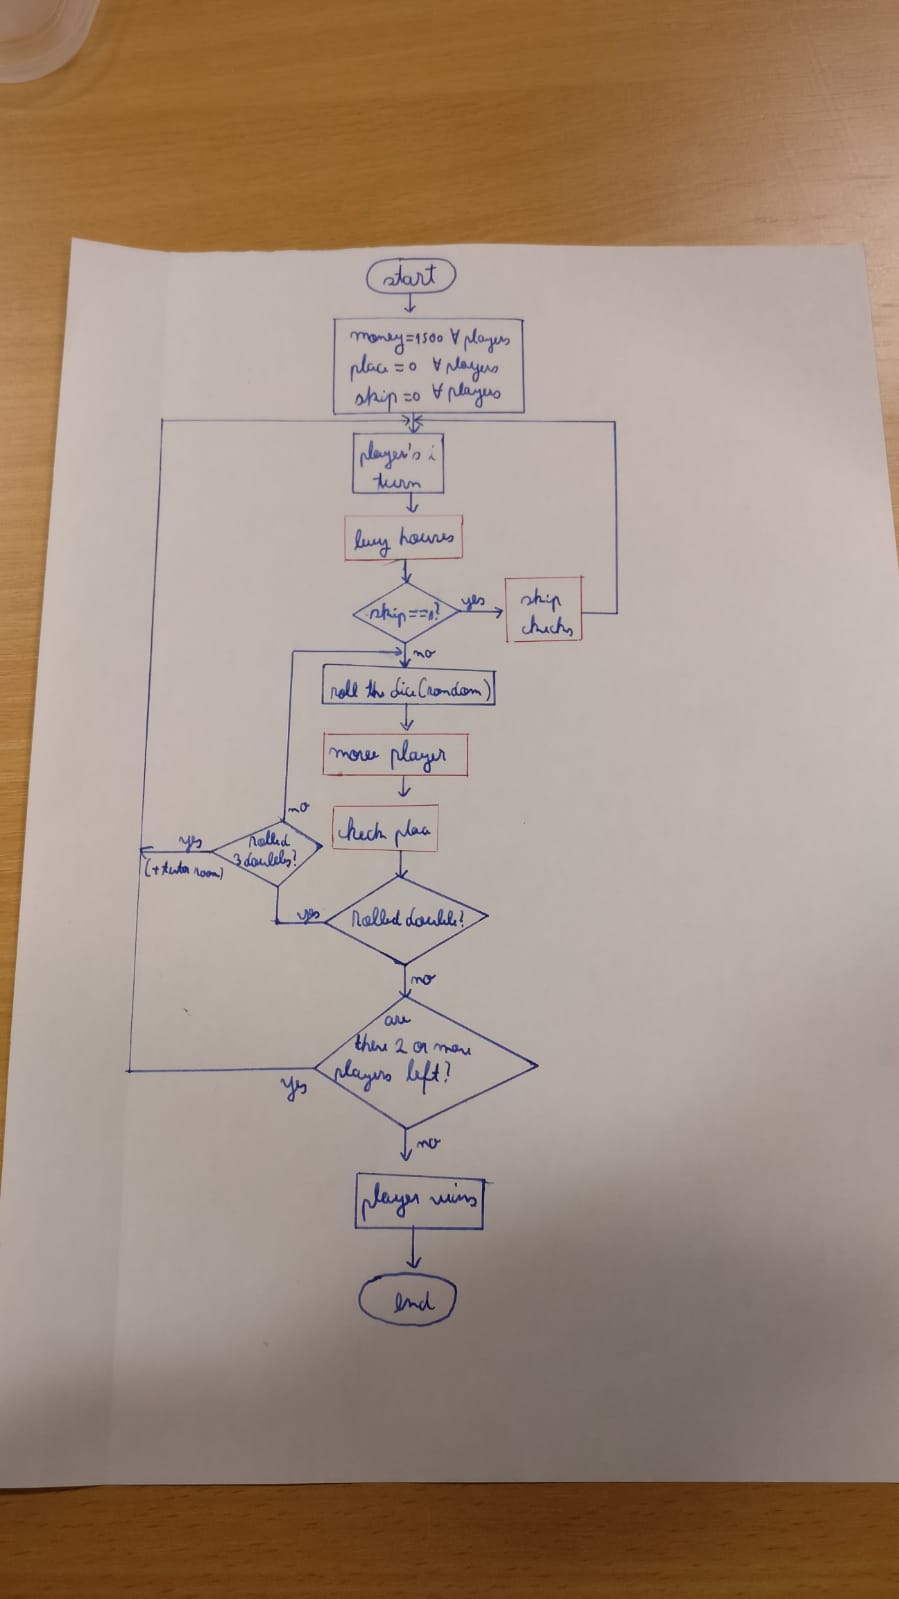 start
money=1500 ∀ players
place=0 ∀ players
skip=0 ∀ players
player's i
turn
buy houses
skip==1?
yes
skip
checks
no
roll the dice(random)
move player
no
check place
yes
rolled
3 doubles?
(+tutor room)
yes
rolled double?
no
are
there 2 or more
players left?
yes
no
player wins
end